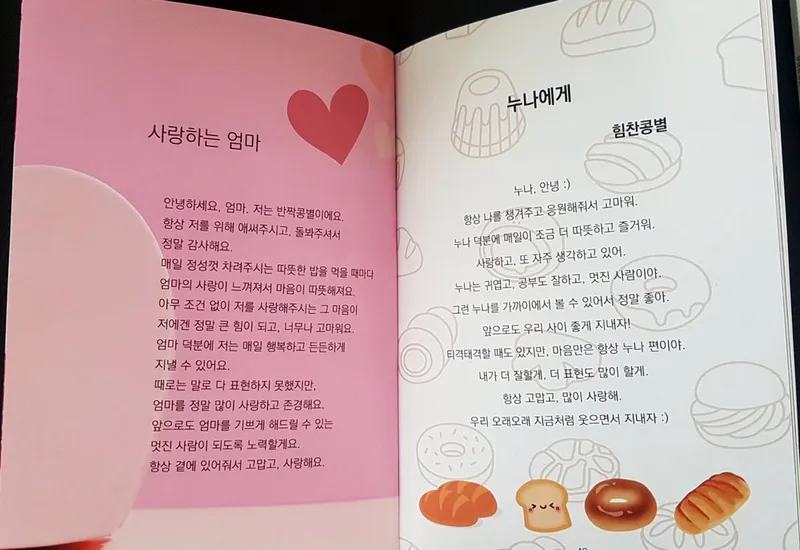 사랑하는 엄마
안녕하세요, 엄마. 저는 반짝콩별이에요.
항상 저를 위해 애써주시고, 돌봐주셔서
정말 감사해요.
매일 정성껏 차려주시는 따뜻한 밥을 먹을 때마다
엄마의 사랑이 느껴져서 마음이 따뜻해져요.
아무 조건 없이 저를 사랑해주시는 그 마음이
저에겐 정말 큰 힘이 되고, 너무나 고마워요.
엄마 덕분에 저는 매일 행복하고 든든하게
지낼 수 있어요.
때로는 말로 다 표현하지 못했지만,
엄마를 정말 많이 사랑하고 존경해요.
앞으로도 엄마를 기쁘게 해드릴 수 있는
멋진 사람이 되도록 노력할게요.
항상 곁에 있어줘서 고맙고, 사랑해요.
누나에게
힘찬콩별
누나, 안녕 :)
항상 나를 챙겨주고 응원해줘서 고마워.
누나 덕분에 매일이 조금 더 따뜻하고 즐거워.
사랑하고, 또 자주 생각하고 있어.
누나는 귀엽고, 공부도 잘하고, 멋진 사람이야.
그런 누나를 가까이에서 볼 수 있어서 정말 좋아.
앞으로도 우리 사이 좋게 지내자!
티격태격할 때도 있지만, 마음만은 항상 누나 편이야.
내가 더 잘할게, 더 표현도 많이 할게.
항상 고맙고, 많이 사랑해.
우리 오래오래 지금처럼 웃으면서 지내자 :)